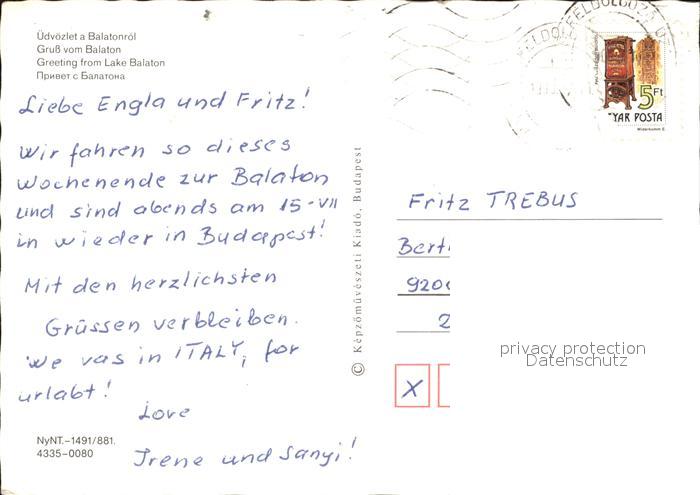 Üdvözlet a Balatonról
Gruß vom Balaton
Greeting from Lake Balaton
Привет с Балатона
Liebe Engla und Fritz!
Wir fahren so dieses
Wochenende zur Balaton
und sind abends am 15-VII
in wieder in Budapest!
Mit den herzlichsten
Grüssen verbleiben.
We vas in ITALY, for
urlabt!
Love
Irene und Sanyi!
NyNT.-1491/881.
4335-0080
© Képzőművészeti Kiadó, Budapest
5Ft
YAR POSTA
Fritz TREBUS
Bert
920
2
X
privacy protection
Datenschutz